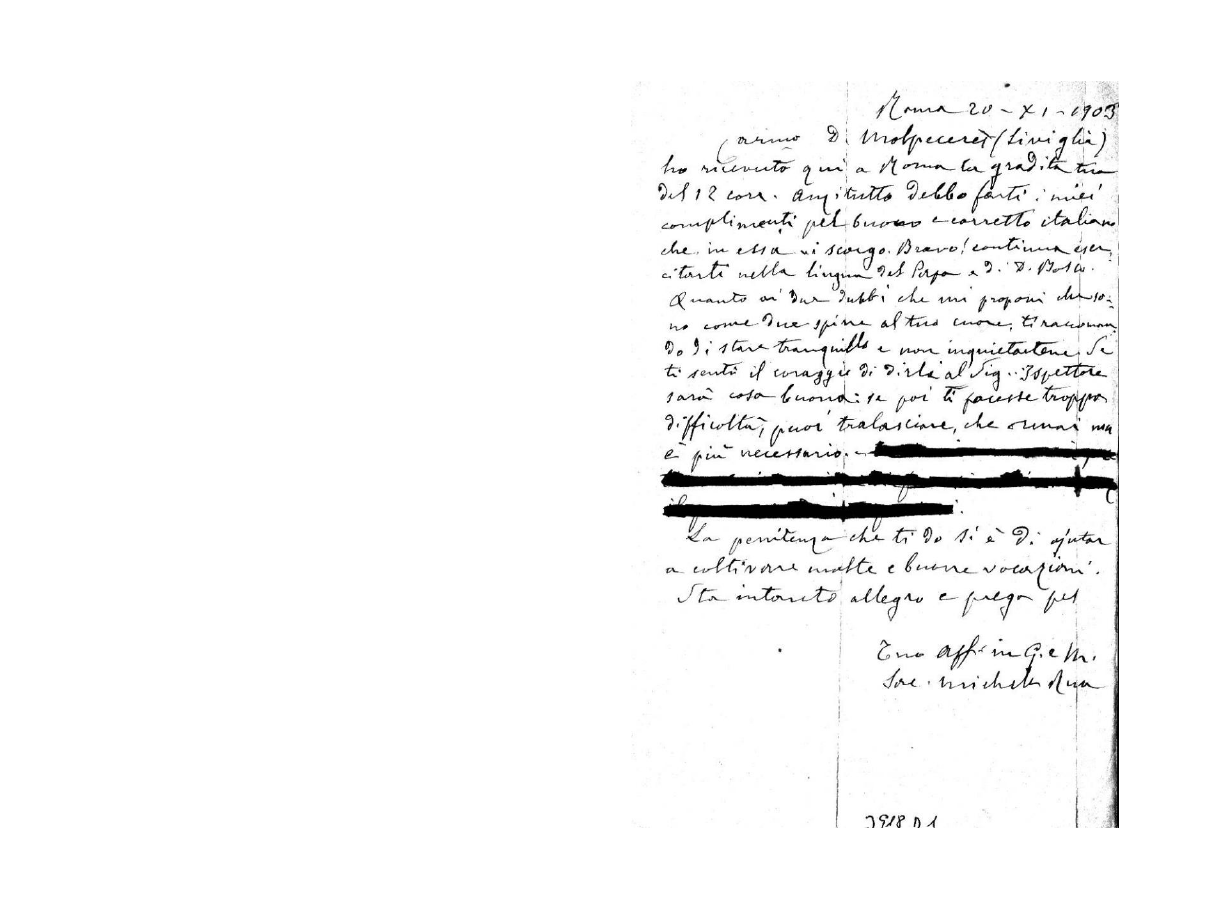 Roma 20 - XI - 1903
Carmo D. Molpeceres (Siviglia)
ho ricevuto qui a Roma la gradita tua
del 12 corr. Anzitutto debbo farti i miei
complimenti pel buono e corretto italiano
che in essa vi scorgo. Bravo! continua eser
citarti nella lingua del Papa e di D. Bosco.
Quanto ai due dubbi che mi proponi che so-
no come due spine al tuo cuore, ti raccoman
do di stare tranquillo e non inquietartene. Se
ti senti il coraggio di dirla al Sig. Ispettore
sarà cosa buona: se poi ti facesse troppa
difficoltà, puoi tralasciare, che ormai non
è più necessario. -
La penitenza che ti do si è di ajutar
a coltivare molte e buone vocazioni.
Sta intanto allegro e prega pel
Tuo aff. in G. e M.
Sac. Michele Rua
3918 D 1